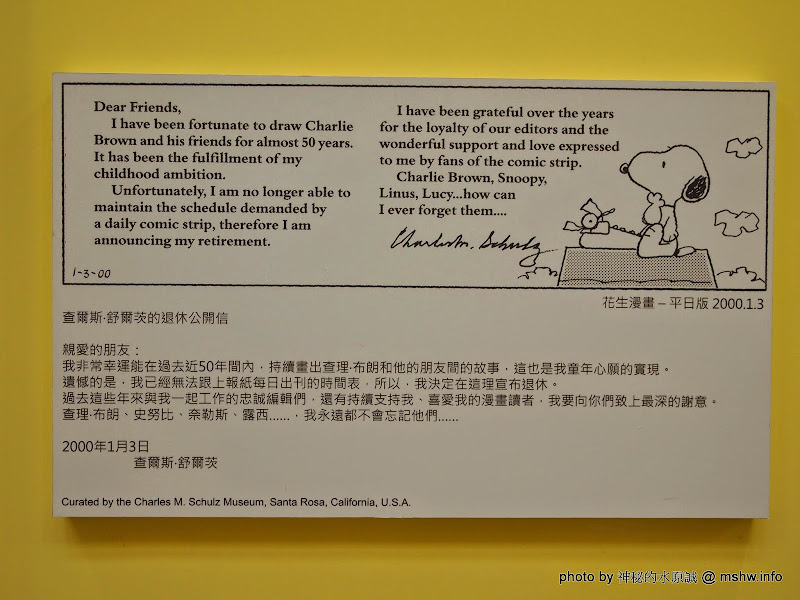 Dear Friends,
I have been fortunate to draw Charlie
Brown and his friends for almost 50 years.
It has been the fulfillment of my
childhood ambition.
Unfortunately, I am no longer able to
maintain the schedule demanded by
a daily comic strip, therefore I am
announcing my retirement.
1-3-00
I have been grateful over the years
for the loyalty of our editors and the
wonderful support and love expressed
to me by fans of the comic strip.
Charlie Brown, Snoopy,
Linus, Lucy...how can
I ever forget them....
Charles M. Schulz
花生漫畫 – 平日版 2000.1.3
查爾斯·舒爾茨的退休公開信
親愛的朋友：
我非常幸運能在過去近50年間內，持續畫出查理·布朗和他的朋友間的故事，這也是我童年心願的實現。
遺憾的是，我已經無法跟上報紙每日出刊的時間表，所以，我決定在這理宣布退休。
過去這些年來與我一起工作的忠誠編輯們，還有持續支持我、喜愛我的漫畫讀者，我要向你們致上最深的謝意。
查理·布朗、史努比、奈勒斯、露西......，我永遠都不會忘記他們......
2000年1月3日
查爾斯·舒爾茨
Curated by the Charles M. Schulz Museum, Santa Rosa, California, U.S.A.
photo by 神秘的水原誠 @ mshw.info